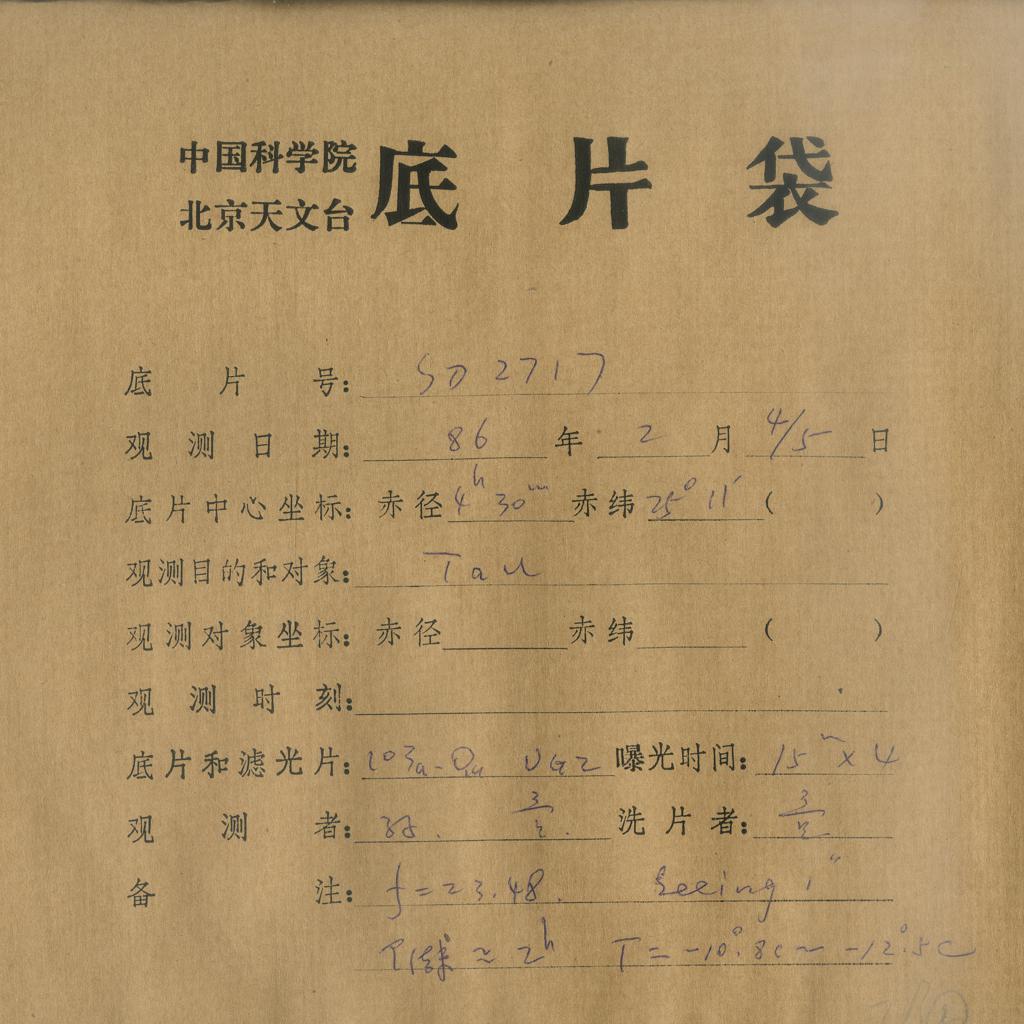 中国科学院
北京天文台
底片袋
底片号: SD 2717
观测日期: 86 年 2 月 4/5 日
底片中心坐标: 赤径 4h 30m 赤纬 25° 11′ ( )
观测目的和对象: Tau
观测对象坐标: 赤径 赤纬 ( )
观测时刻:
底片和滤光片: 103a-O UG2 曝光时间: 15m × 4
观测者: 洗片者:
备注: f = 23.48. Seeing 1″
≈ 2h T = -10°.8C ~ -12°.5C